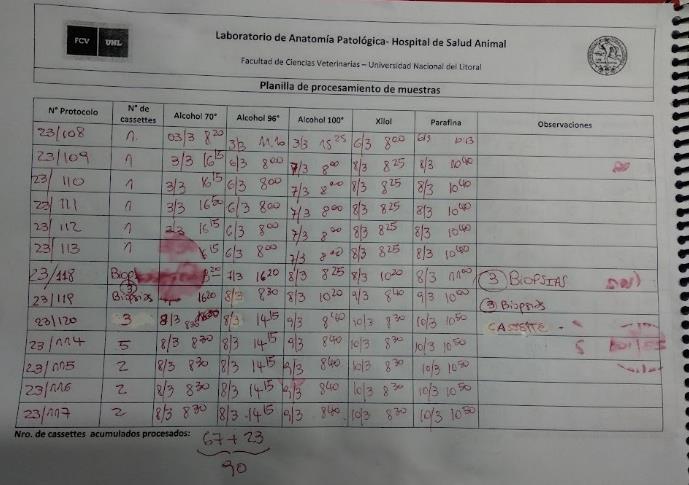 FCV UNL
Laboratorio de Anatomía Patológica- Hospital de Salud Animal
Facultad de Ciencias Veterinarias – Universidad Nacional del Litoral
Planilla de procesamiento de muestras
N° Protocolo N° de cassettes Alcohol 70° Alcohol 96° Alcohol 100° Xilol Parafina Observaciones
23/108 1. 03/3 8 20 3/3 11.10 3/3 15 25 6/3 8 00 6/3
23/109 1 3/3 16 15 6/3 8 00 7/3 8 00 8/3 8 25 8/3 10 40
23/110 1 3/3 16 15 6/3 8 00 7/3 8 00 8/3 8 25 8/3 10 40
23/111 1 3/3 6/3 8 00 7/3 8 00 8/3 8 25 8/3 10 40
23/112 1 3/3 16 15 6/3 8 00 7/3 8 00 8/3 8 25 8/3 10 40
23/113 1 6/3 8 00 7/3 8 00 8/3 8 25 8/3 10 40
23/118 Biop 3 7/3 16 20 8/3 8 25 8/3 10 20 8/3 11 00 3 BIOPSIAS
23/119 3 Biopsias 16 20 8/3 8 30 8/3 10 20 9/3 8 40 9/3 10 00 3 Biopsias
23/120 3 8/3 8 30 8/3 14 15 9/3 8 40 10/3 8 30 10/3 10 50 CASSETTE
23/114 5 8/3 8 30 8/3 14 15 9/3 8 40 10/3 8 30 10/3 10 50
23/115 2 8/3 8 30 8/3 14 15 9/3 8 40 10/3 8 30 10/3 10 50
23/116 2 8/3 8 30 8/3 14 15 9/3 8 40 10/3 8 30 10/3 10 50
23/117 2 8/3 8 30 8/3 14 15 9/3 8 40 10/3 8 30 10/3 10 50
Nro. de cassettes acumulados procesados: 67 + 23
90